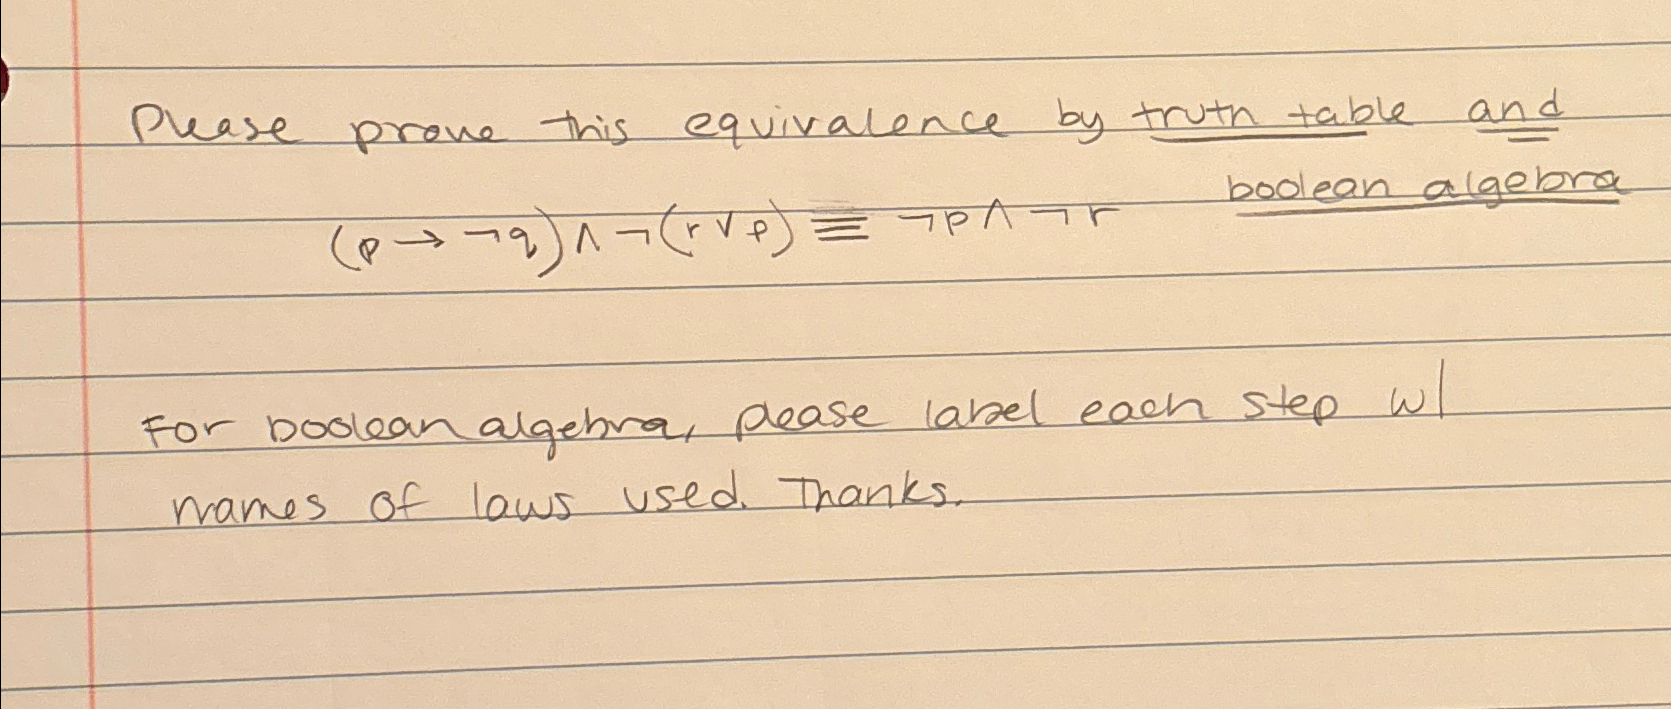 Please prove this equivalence by truth table and
boolean algebra
(p → ¬q) ∧ ¬(r ∨ p) ≡ ¬p ∧ ¬r
For boolean algebra, please label each step w/
names of laws used. Thanks.